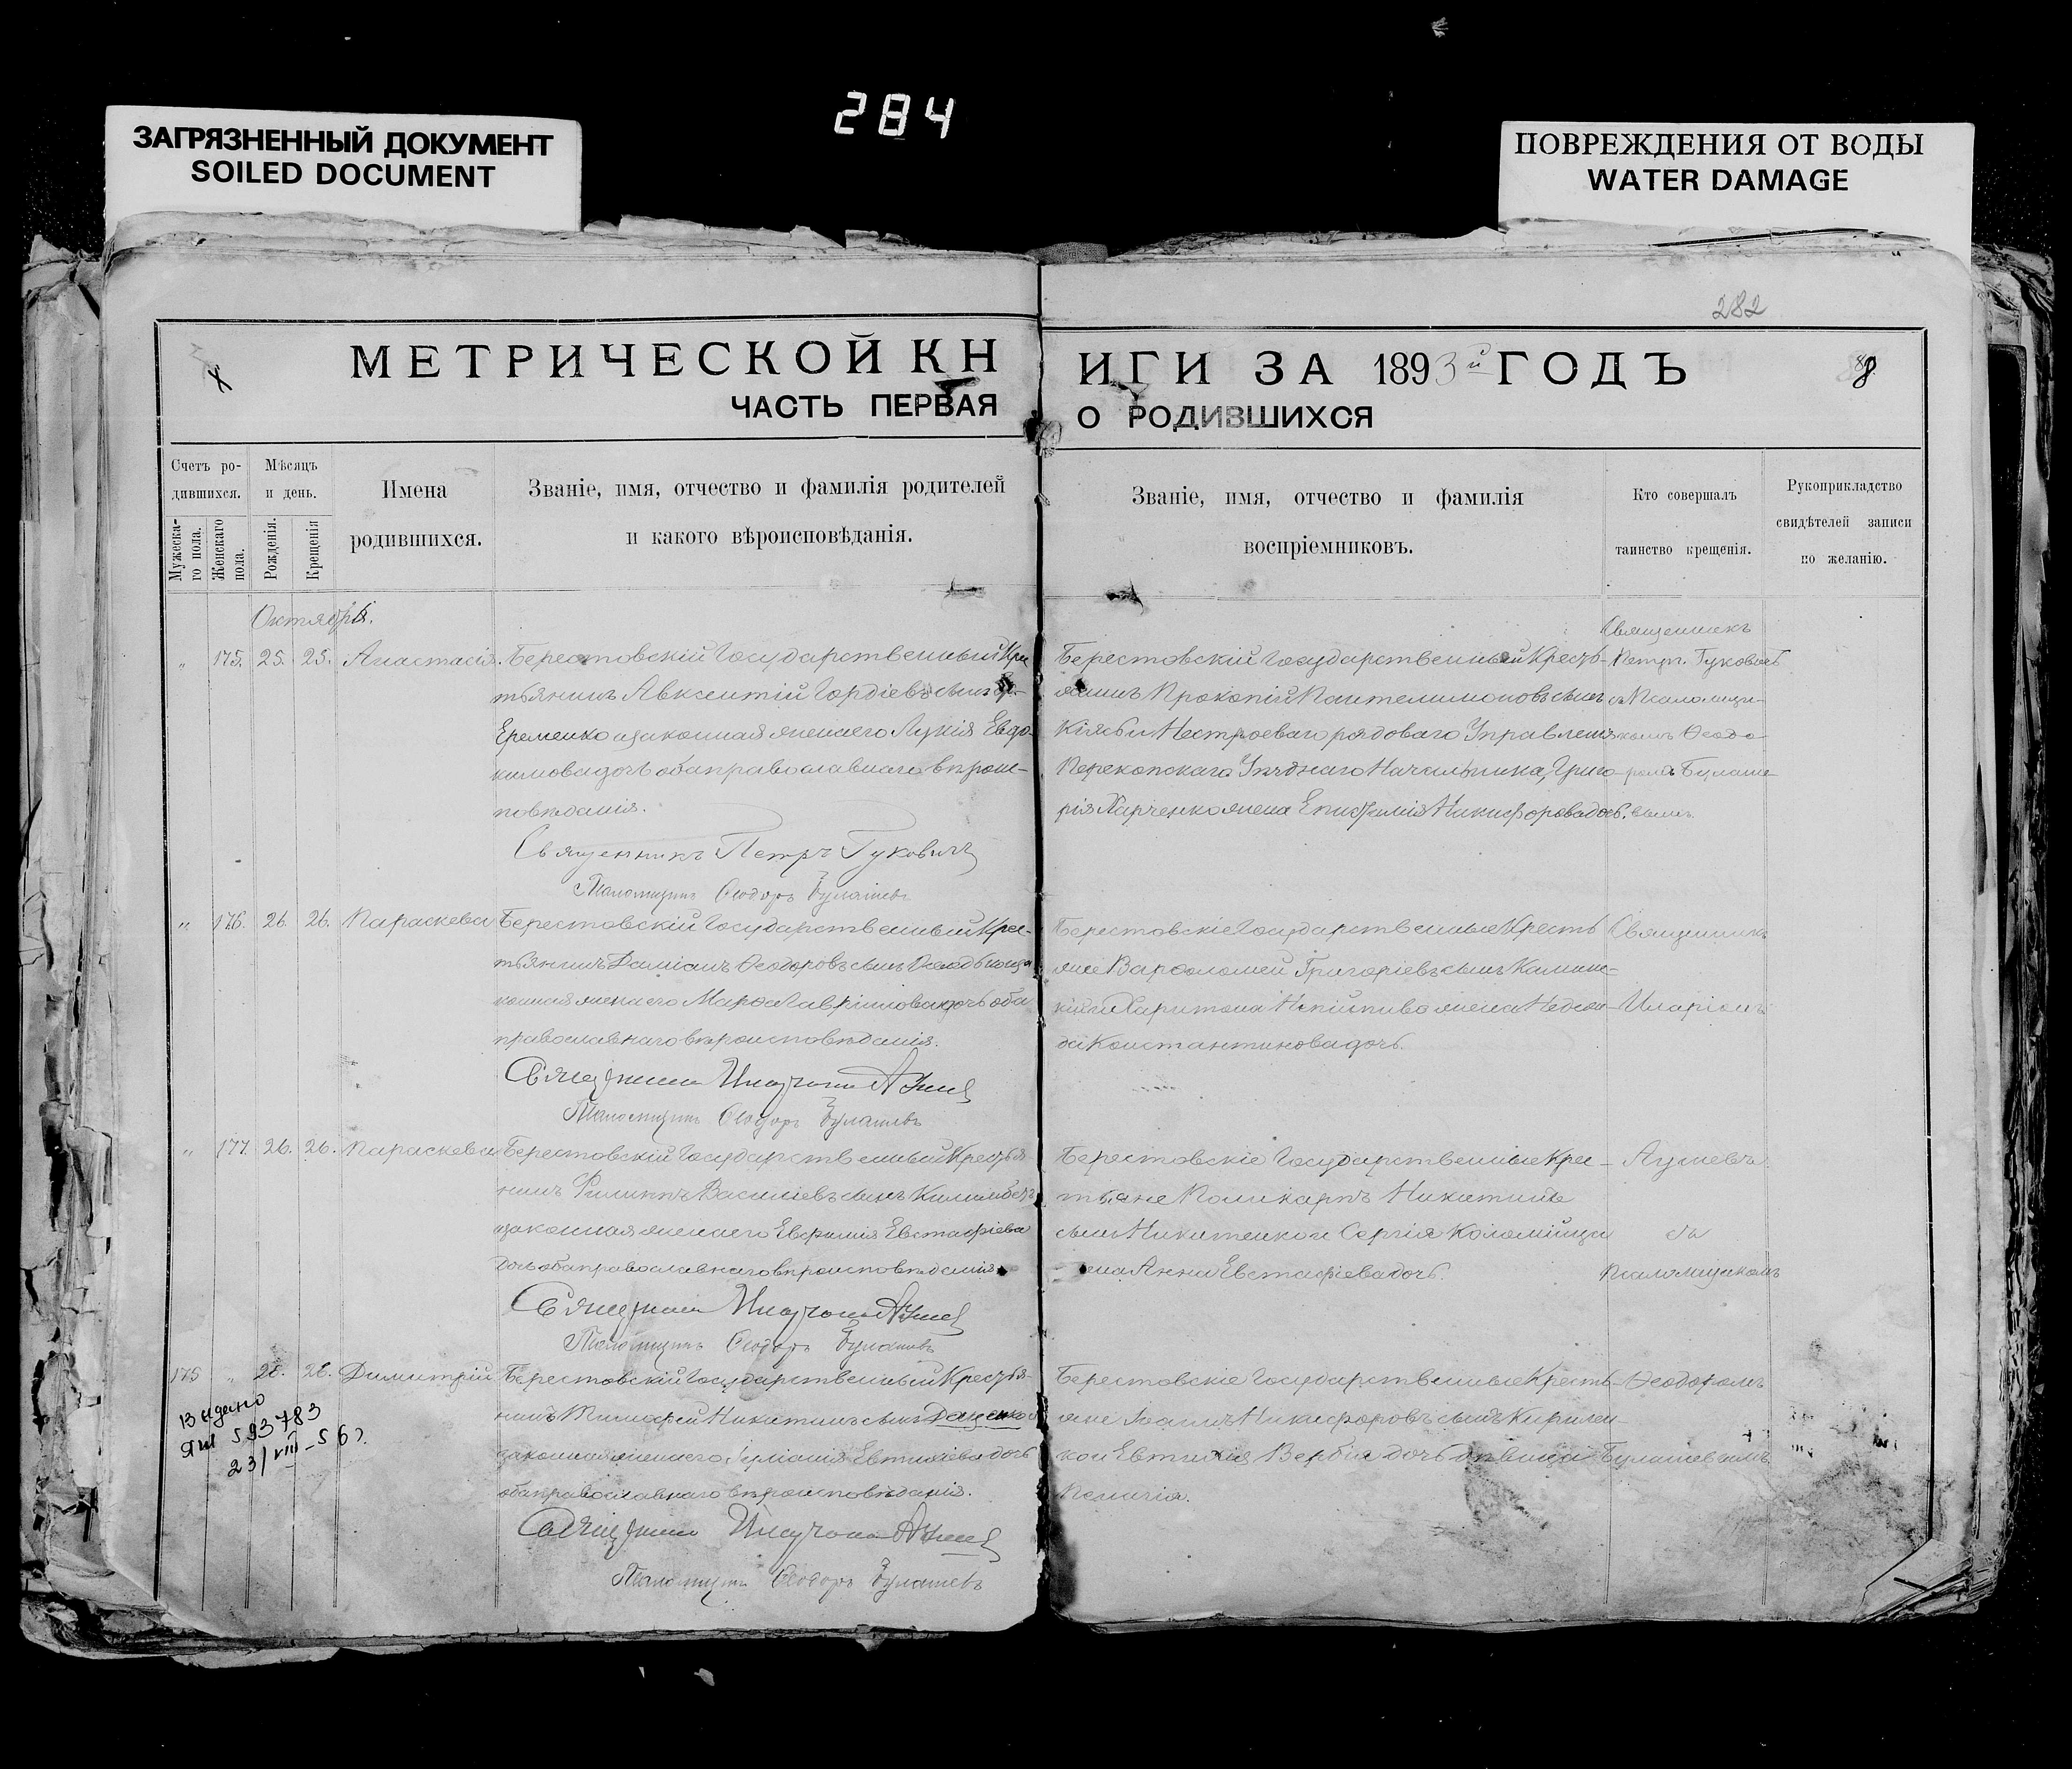 284
ЗАГРЯЗНЕННЫЙ ДОКУМЕНТ
SOILED DOCUMENT
ПОВРЕЖДЕНИЯ ОТ ВОДЫ
WATER DAMAGE
282
МЕТРИЧЕСКОЙ КН
ЧАСТЬ ПЕРВАЯ
ИГИ ЗА 1893й ГОДЪ
О РОДИВШИХСЯ
Счетъ ро-
дившихся.
Мужеска-
го пола.
Женскаго
пола.
Мѣсяцъ
и день.
Рожденія.
Крещенія
Имена
родившихся.
Званіе, имя, отчество и фамилія родителей
и какого вѣроисповѣданія.
Званіе, имя, отчество и фамилія
воспріемниковъ.
Кто совершалъ
таинство крещенія.
Рукоприкладство
свидѣтелей записи
по желанію.
Октября.
" 175. 25. 25. Анастасія.
Берестовскій Государственный Кре
тьянинъ Авксентій Гордіевъ сынъ
Еременко и законная жена его Лукія Евдо-
кимова дочь оба православнаго вѣроис-
повѣданія.
Священникъ Петръ Гуковичъ
Псаломщикъ Ѳеодоръ Булашевъ
Берестовскій Государственный Кресть-
янинъ Прокопій Пантелимоновъ сынъ
Нестроеваго рядоваго Управленія
Перекопскаго Уѣзднаго Начальника, Григо-
рія Харченко жена Епифимія Никифорова дочь.
Священникъ
Петръ Гуковичъ
съ Псаломщи-
комъ Ѳеодо-
ромъ Булаше-
вымъ
" 176. 26. 26. Параскева
Берестовскій Государственный Крес-
тьянинъ Даміанъ Ѳеодоровъ сынъ
конная жена его Марѳа Гавріилова дочь оба
православнаго вѣроисповѣданія.
Священникъ Иларіонъ
Псаломщикъ Ѳеодоръ Булашевъ
Берестовскіе Государственные Кресть
яне Варѳоломей Григоріевъ сынъ Камин-
скій и Харитона Непійпиво жена Надеж-
да Константинова дочь.
Священникъ
Иларіонъ
" 177. 26. 26. Параскева
Берестовскій Государственный Кресть я
нинъ Филиппъ Василіевъ сынъ
и законная жена его Евфимія Евстафіева
дочь оба православнаго вѣроисповѣданія.
Священникъ Иларіонъ
Псаломщикъ Ѳеодоръ Булашевъ
Берестовскіе Государственные Крес-
тьяне Поликарпъ Никитинъ
сынъ Никитенко и Сергія Коломійца
жена Анна Евстафіева дочь.
съ
Псаломщикомъ
175 " 26. 26. Димитрій
Берестовскій Государственный Кресть я-
нинъ Никитинъ сынъ Даценко и
законная жена его Іуліанія Евтихіева дочь
оба православнаго вѣроисповѣданія.
Священникъ Иларіонъ
Псаломщикъ Ѳеодоръ Булашевъ
Берестовскіе Государственные Кресть-
яне Іоаннъ Никифоровъ сынъ Кирилен-
ко и Евтихія Вербія дочь дѣвица
Пелагія.
Ѳеодоромъ
Булашевымъ
Видано
ЯШ 593783
23/VIII-56 г.